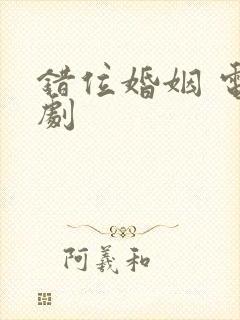 錯位婚姻 電
劇
阿羲和